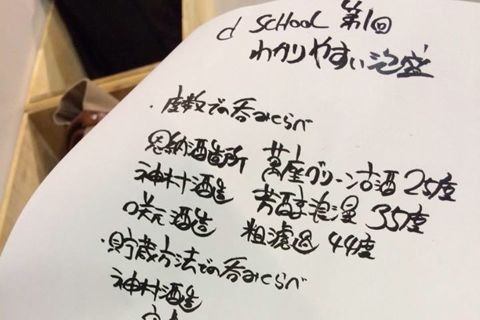 d SCHOOL 第1回
わかりやすい泡盛
・度数での呑みくらべ
恩納酒造所 萬座グリーン古酒 25度
神村酒造 芳醇浪漫 35度
咲元酒造 粗濾過 44度
・貯蔵方法での呑みくらべ
神村酒造